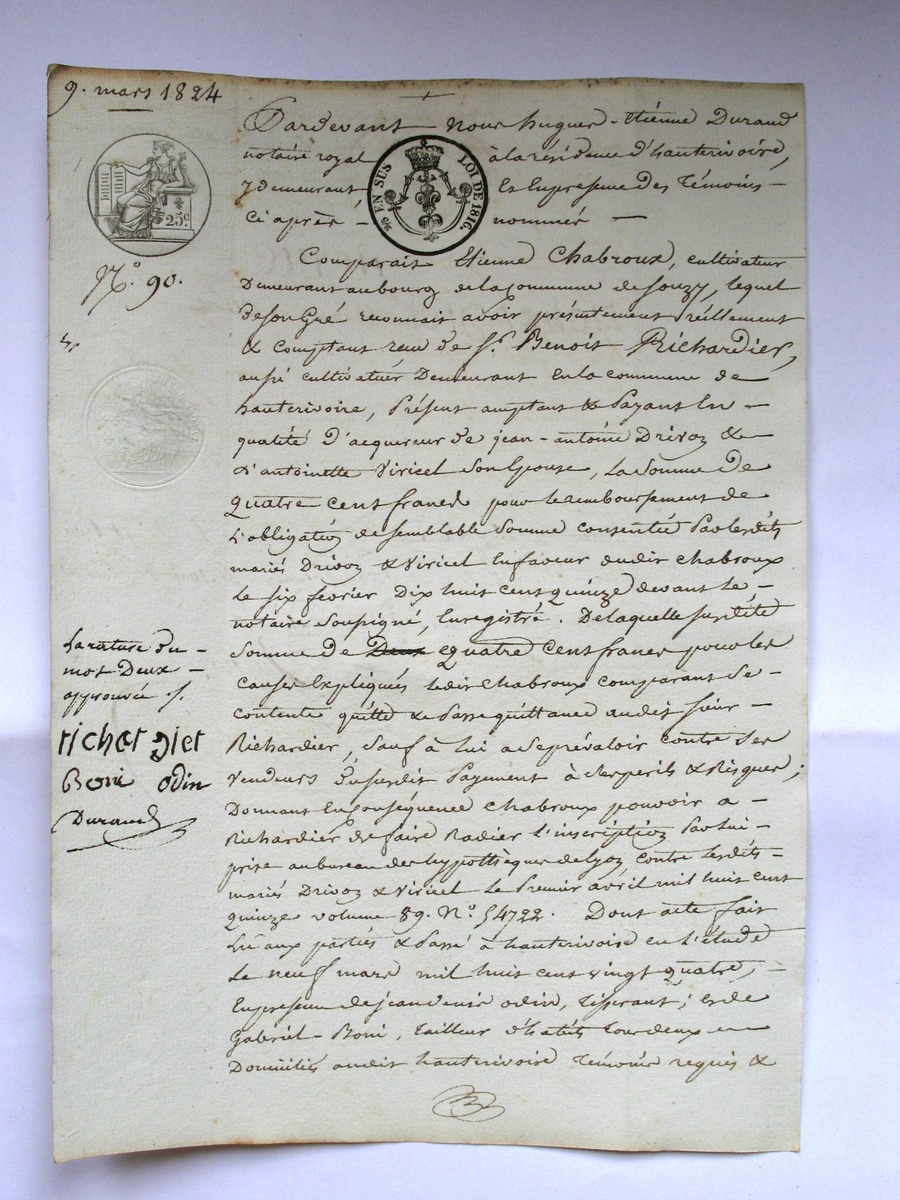 9. mars 1824
25c.
EN SUS
LOI DE 1816.
N.º 90.
Pardevant Nous hugues-Etiénne Durand
notaire royal à la résidence d'hauterivoire,
y demeurant Et En presense des Témoins -
Ci après - nommés —
Comparait Etienne Chabroux, cultivateur
Demeurant au bourg de la Commune de Souzy, lequel
de Son Gré reconnait avoir présentement réellement
& comptant reçu de S.r Benoit Richardier,
aussi cultivateur Demeurant En la commune de
hauterivoire, Présent acceptant & Payant En -
qualité D'acquereur de jean-antoine Drivoz & -
d'antoinette Viricel Son Epouse, La Somme De
quatre cent francs pour le remboursement de
L'obligation de semblable Somme consentie Par lesdits
mariés Drivoz & Viricel En faveur dudit Chabroux
Le six février Dix huit cent quinze devant Le -
notaire Soussigné, Enregistré. De laquelle susdite
Somme de Deux quatre Cent francs pour les
Causes Expliqués ledit Chabroux comparant Se -
Contente quitte & Passe quittance audit Sieur -
Richardier, Sauf à lui a Se prévaloir contre Ses
Vendeurs Du susdit Payement à Ses perils & Risques ;
Donnant En Conséquence Chabroux pouvoir a -
Richardier de faire Radier L'inscription Par lui -
prise au bureau des hypothèques de Lyon contre lesdits -
mariés Drivoz & Viricel Le Premier avril mil huit cent
quinze volume 89. Nº. 54722. Dont acte fait
Lu aux parties & Passé à hauterivoire en L'étude
Le neuf mars mil huit cent vingt quatre, -
En presense de jean denis odin, Tisserant ; et de
Gabriel Boni, Tailleur d'habits tous deux -
Domiciliés audit hauterivoire Témoins requis &
La rature du -
mot Deux -
approuvée
richardier
Boni odin
Durand